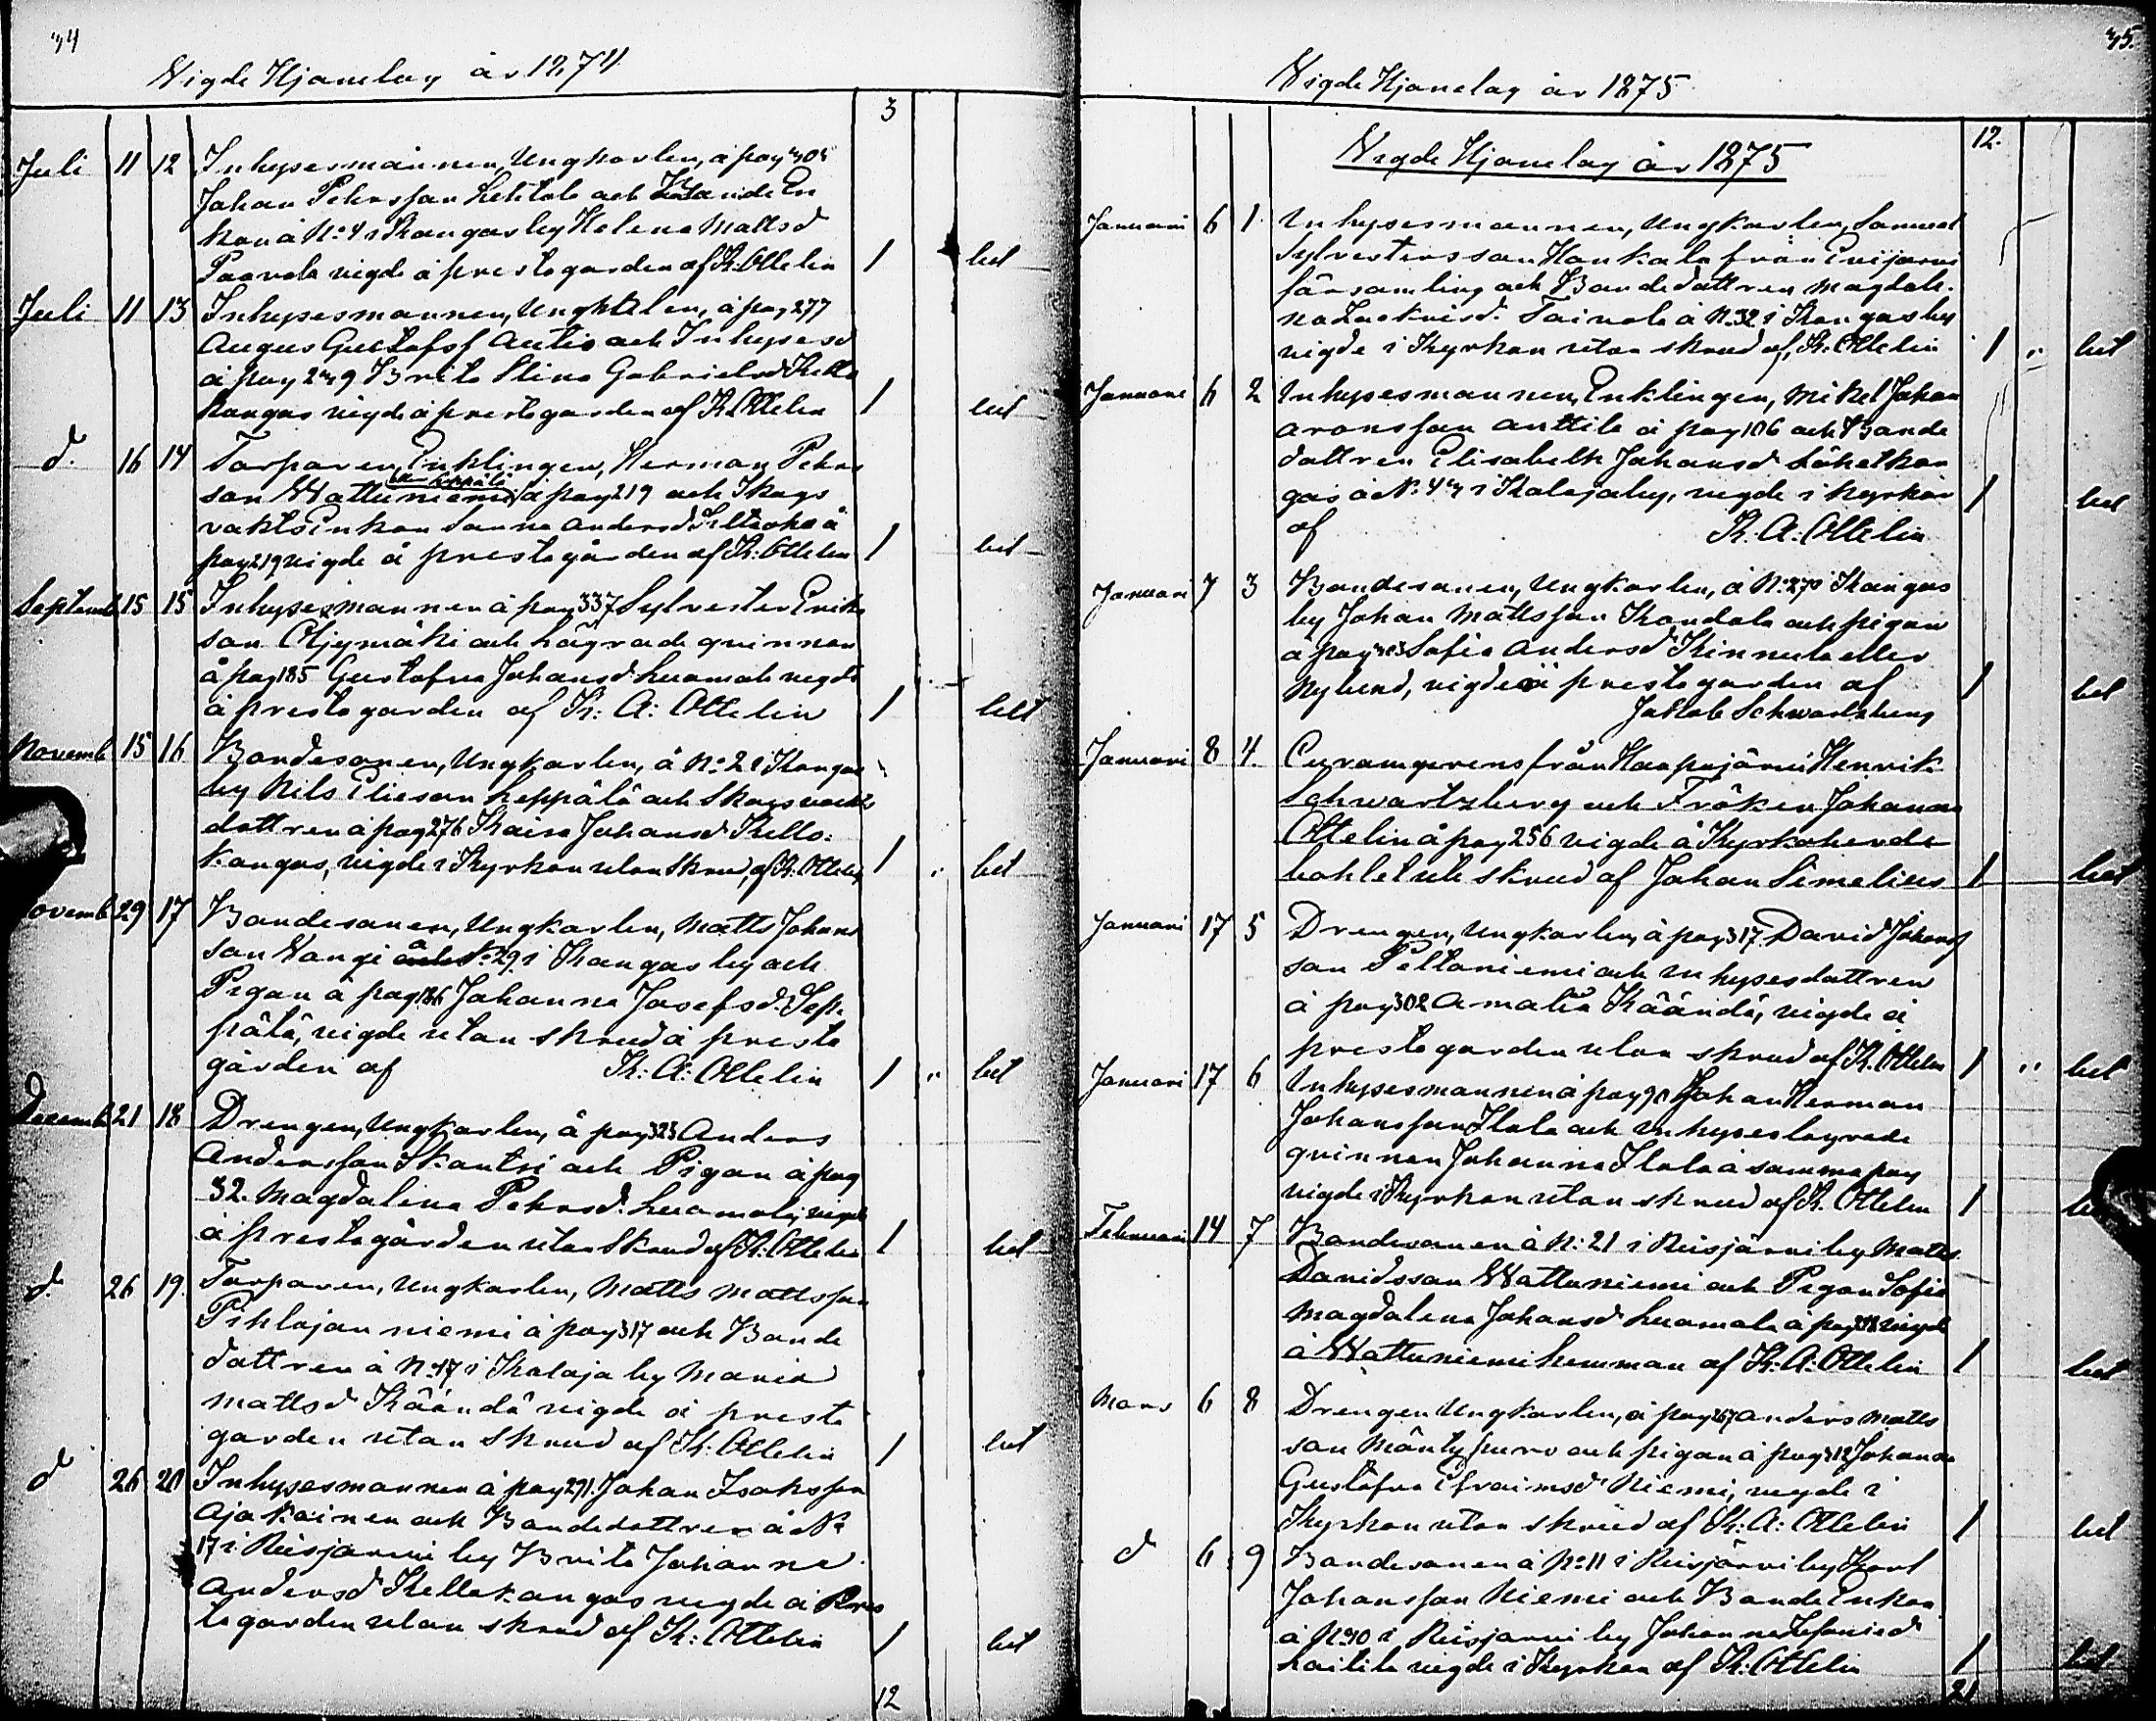 34
Vigde Hjonelag år 1874
3
Juli 11 12 Inhysesmannen, Ungkarlen, å pag 303
Johan Pehrsson Lehtola och Bonde En
kan å No: 4 i Kangas by Helena Mattsd
Paavola vigde å prestegården af K: Ottelin 1 bet
Juli 11 13 Inhysesmannen, Ungkarlen, å pag 277
August Gustafsf Autio och Inhysesd
å pag 239 Brita Stina Gabrielsd Kello
kangas vigde å prestegården af K. Ottelin 1 bet
d. 16 14 Torparen, Enklingen, Herman Pehrs
son Wattuniemi å pag 219 och Skogs
vakts Enkan Sanna Andersd å
pag 219 vigde å prestegården af K: Ottelin 1 bet
Septemb 15 15 Inhysesmannen å pag 337 Sylvester Eriks
son Öljymäki och lägrade qvinnan
å pag 185 Gustafva Johansd Luomala vigde
å prestegården af K: A: Ottelin 1 bet
Novemb 15 16 Bondesonen, Ungkarlen, å No: 2 i Kangas
by Nils Eliesson Leppälä och Skogsvakts
dottren å pag 276 Kaisa Johansd Kello-
kangas, vigde i Kyrkan utan skrud, af K: Ottelin 1 " bet
Novemb 29 17 Bondesonen, Ungkarlen, Matts Johans
son Vangi å No: 29 i Kangas by och
Pigan å pag 186 Johanna Josefsd: Sep-
pälä, vigde utan skrud å preste
gården af K: A: Ottelin 1 " bet
Decemb 21 18 Drengen, Ungkarlen, å pag 323 Anders
Andersson Skantsi och Pigan å pag
32. Magdalena Pehrsd: Luomala, vigde
å prestegården utan skrud af K: Ottelin 1 bet
d. 26 19. Torparen, Ungkarlen, Matts Mattsson
Pihlajaniemi å pag 317 och Bonde
dottren å No: 17 i Kalaja by Maria
Mattsd Käändä vigde å preste
garden utan skrud af K: Ottelin 1 bet
d 26 20 Inhysesmannen å pag 291. Johan Isaksson
Ajakainen och Bondedottren å No
17 i Reisjärvi by Brita Johanna
Andersd Kellokangas vigde å Pres
tegarden utan skrud af K: Ottelin 1 bet
12
35.
Vigde Hjonelag år 1875
12.
Vigde Hjonelag år 1875
Januari 6 1. Inhysesmannen, Ungkarlen, Samuel
Sylvestersson Haukala från Evijärvi
församling och Bondedottren Magdale-
na Zackrisd. Taivola å No. 32 i Kangas by
vigde i Kyrkan utan skrud af, K: Ottelin 1 " bet
Januari 6 2 Inhysesmannen, Enklingen, Mikel Johan
Aronsson Anttila å pag 106 och Bonde
dottren Elisabeth Johansd Löhetkan
gas å No: 43 i Kalaja by, vigde i kyrkan 1 bet
af K: A: Ottelin
Januari 7 3 Bondesonen, Ungkarlen, å No: 27 i Kangas
by Johan Mattsson Kandola och pigan
å pag 323 Sofia Andersd Kinnula eller
Nylund, vigde å prestegården af 1 bet
Jakob Schwartzberg
Januari 8 4. Curamgerens från Haapajärvi Henrik
Schwartzberg och Fröken Johanna
Ottelin å pag 256 vigde å Kyrkoherde
bohlet ute skrud af Johan Simelius 1 bet
Januari 17 5 Drengen, Ungkarlen, å pag 317 David Johans
son Peltoniemi och Inhysesdottren
å pag 302 Amalia Käändä, vigde å
prestegarden utan skrud af K. Ottelin 1 " bet
Januari 17 6 Inhysesmannen å pag 90 Johan Herman
Johansson Ilola och Inhyseslägrade
qvinnan Johanna Ilola å samma pag
vigde i Kyrkan utan skrud af K. Ottelin 1 bet
Februari 14 7 Bondesonen å No: 21 i Reisjärvi by Matts
Davidsson Wattuniemi och Pigan Sofia
Magdalena Johansd Luomala å pag vigde
å Wattuniemi hemman af K: A: Ottelin 1 bet
Mars 6 8 Drengen Ungkarlen, å pag 267 Anders Matts
son Mäntypuro och pigan å pag 312 Johanna
Gustafva Efraimsd Niemi, vigde i
Kyrkan utan skrud af K: A: Ottelin 1 bet
d 6 9 Bondesonen å No: 11 i Reisjärvi by Karl
Johansson Niemi och Bonde Enkan
å No 30 i Reisjärvi by Johanna Zefaniesd
Laitila vigde i Kyrkan af K: Ottelin 1 bet
21